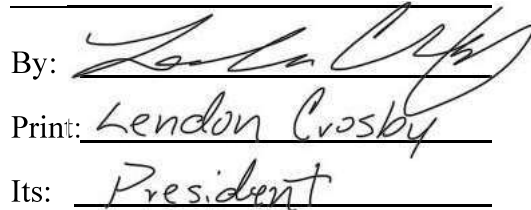 By:
Print: Lendon Crosby
Its: President